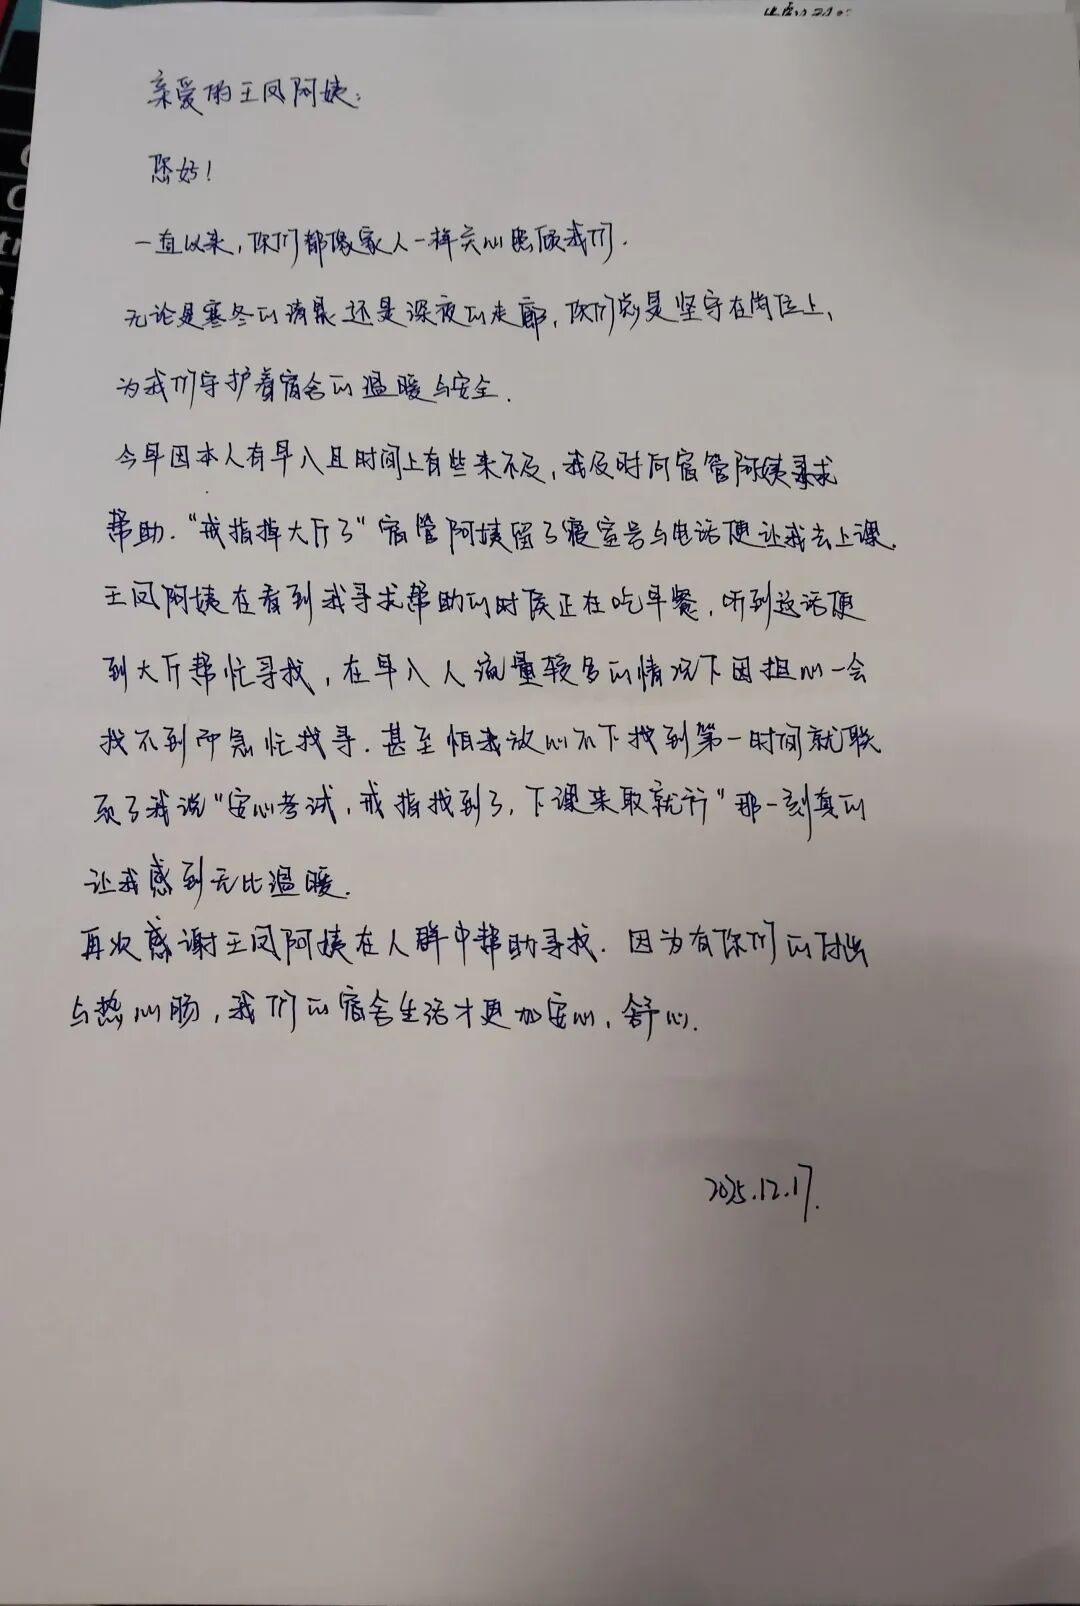 亲爱的王凤阿姨:
您好!
一直以来,你们都像家人一样关心照顾我们.
无论是寒冬的清晨还是深夜的走廊,你们总是坚守在岗位上,
为我们守护着宿舍的温暖与安全.
今早因本人有早八且时间上有些来不及,我及时向宿管阿姨寻求
帮助.“戒指掉大厅了”宿管阿姨留了寝室号与电话便让我去上课.
王凤阿姨在看到我寻找帮助的时候正在吃早餐,听到这话便
到大厅帮忙寻找,在早八人流量较多的情况下因担心一会
找不到而急忙找寻.甚至怕我放心不下找到第一时间就联
系了我说“安心考试,戒指找到了,下课来取就行”那一刻真的
让我感到无比温暖.
再次感谢王凤阿姨在人群中帮助寻找.因为有你们的付出
与热心肠,我们的宿舍生活才更加安心、舒心.
2025.12.17.